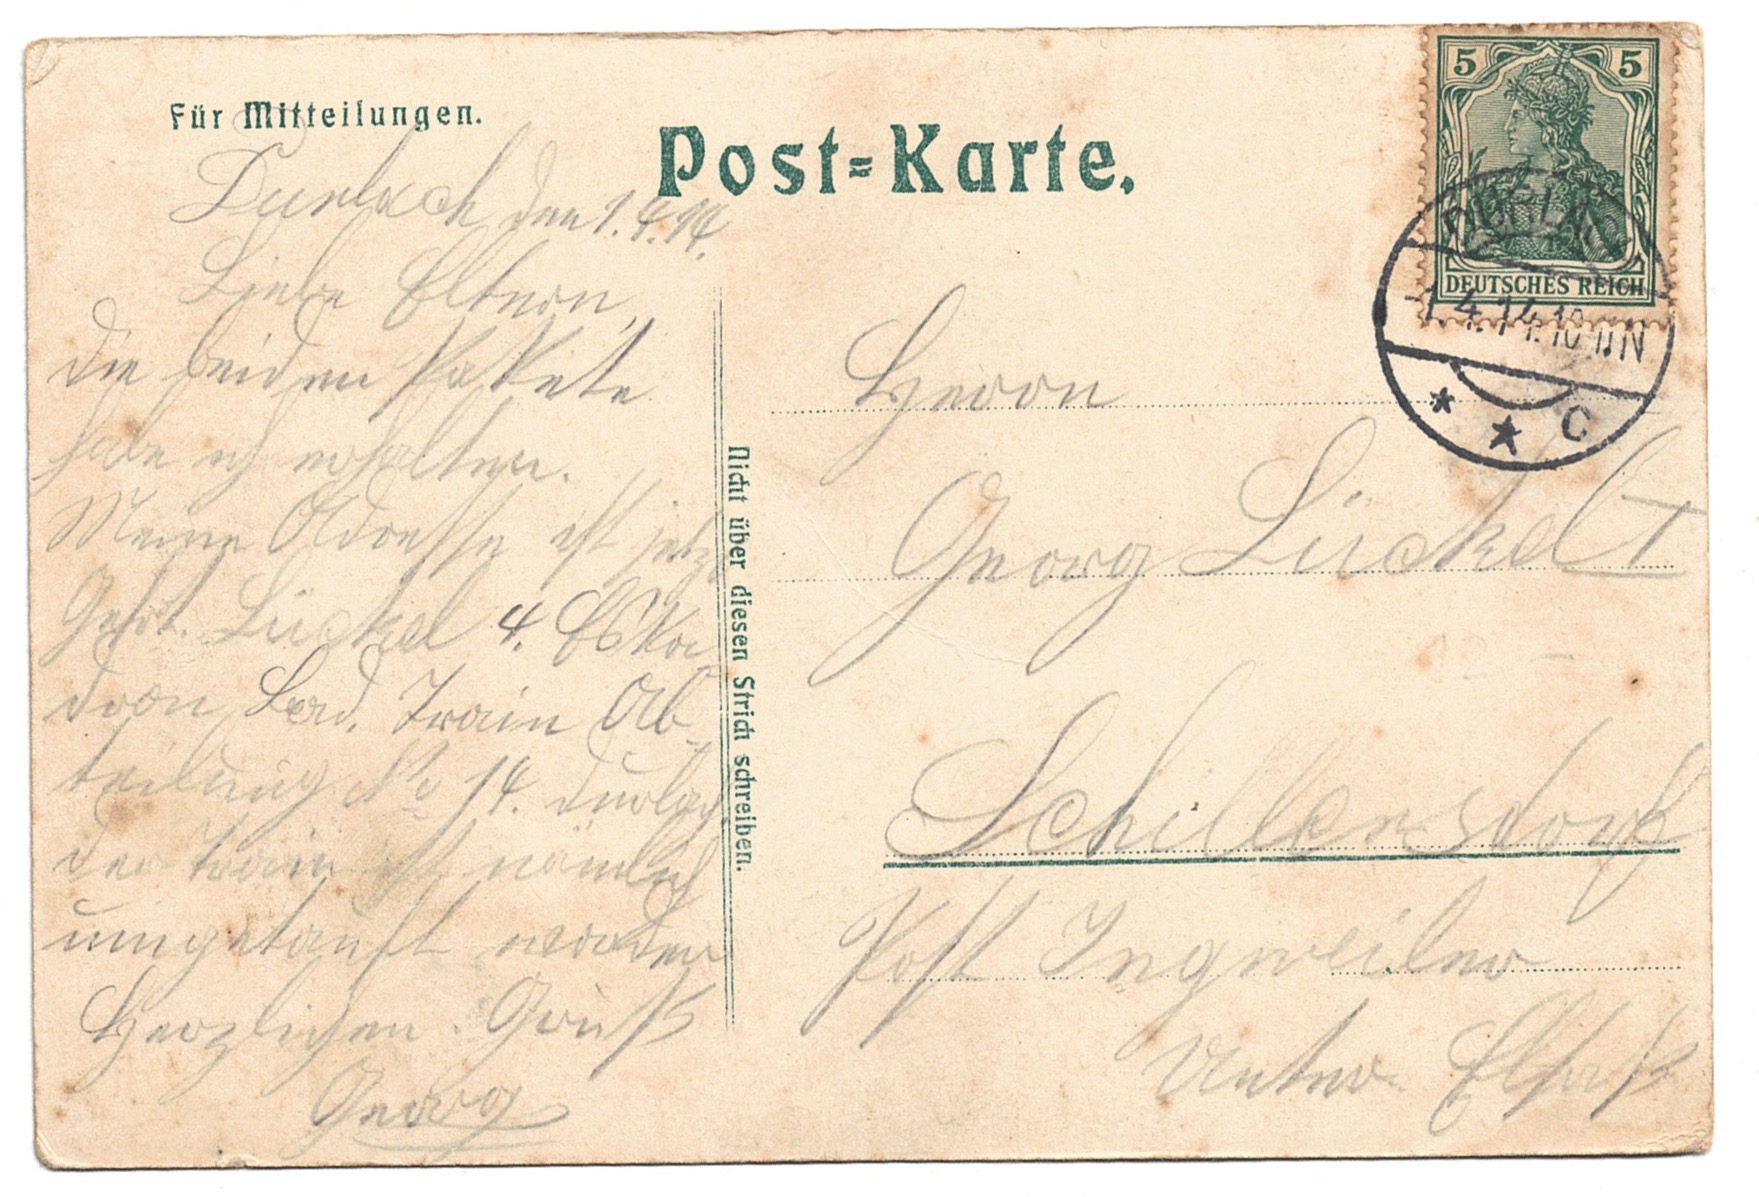 Für Mitteilungen.
Post-Karte.
5 5
DEUTSCHES REICH
DURLA
1.4.14. 10 N
* * C
Durlach den 1.4.14.
Liebe Eltern,
die beiden Pakete
habe ich erhalten.
Meine Adresse ist jetzt
Gefrt. Lückel 4. Eska
dron, Bad. Train Ab-
teilung No 14. Durlach,
der Train ist nämlich
umgetauft worden
Herzlichen Gruß
Georg
Nicht über diesen Strich schreiben.
Herrn
Georg Lückel I
Schillersdorf
Post Ingweiler
Unter Elsaß